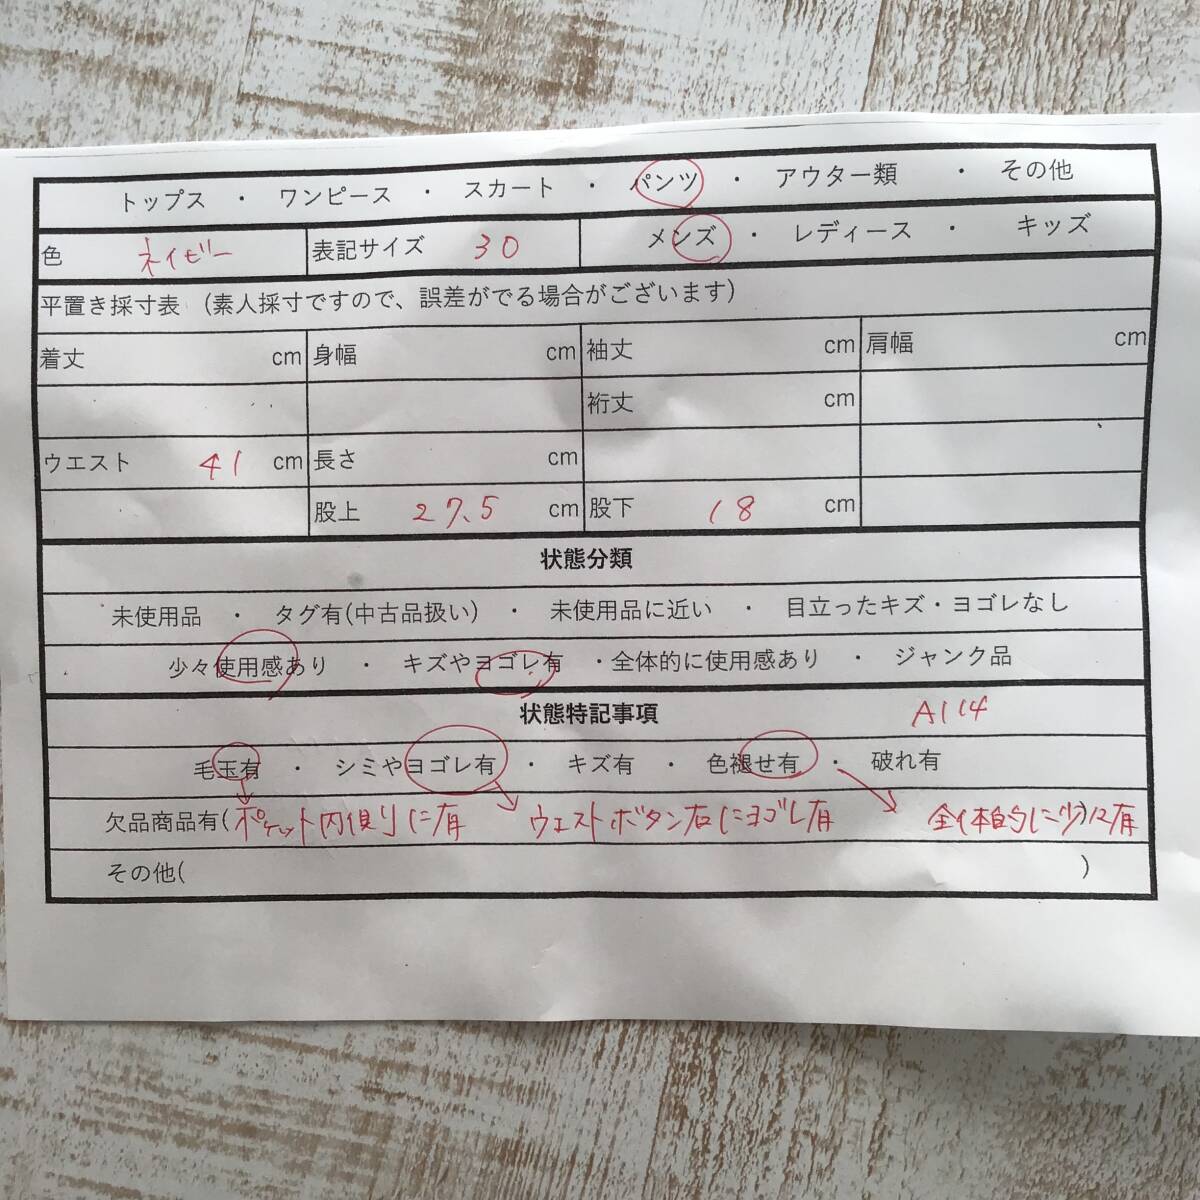 トップス ・ ワンピース ・ スカート ・ パンツ ・ アウター類 ・ その他
色 ネイビー 表記サイズ 30 メンズ ・ レディース ・ キッズ
平置き採寸表 （素人採寸ですので、誤差がでる場合がございます）
着丈 cm 身幅 cm 袖丈 cm 肩幅 cm
裄丈 cm
ウエスト 41 cm 長さ cm
股上 27.5 cm 股下 18 cm
状態分類
未使用品 ・ タグ有(中古品扱い) ・ 未使用品に近い ・ 目立ったキズ・ヨゴレなし
少々使用感あり ・ キズやヨゴレ有 ・全体的に使用感あり ・ ジャンク品
状態特記事項 A114
毛玉有 ・ シミやヨゴレ有 ・ キズ有 ・ 色褪せ有 ・ 破れ有
欠品商品有( ポケット内側に有 ウエストボタン右にヨゴレ有 全体的に少)に有
その他( )